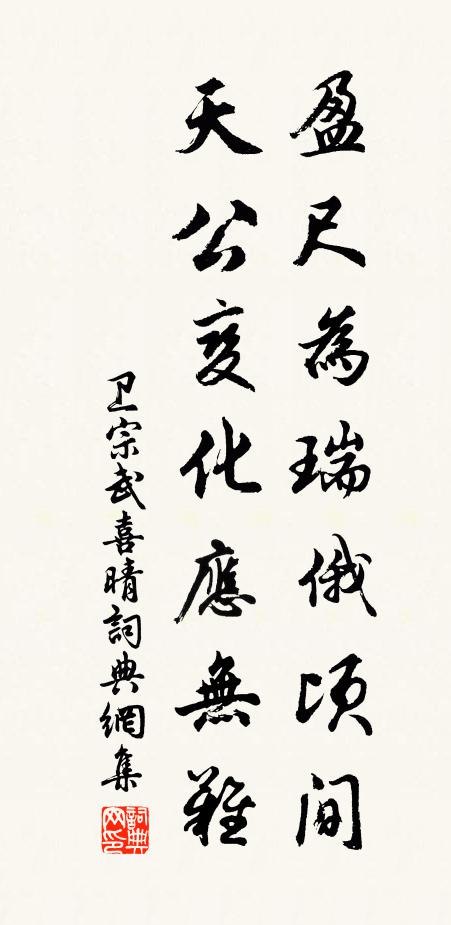 盈尺為瑞俄頃间
天公变化應無難
卫宗武喜晴詞典網集
詞典网印